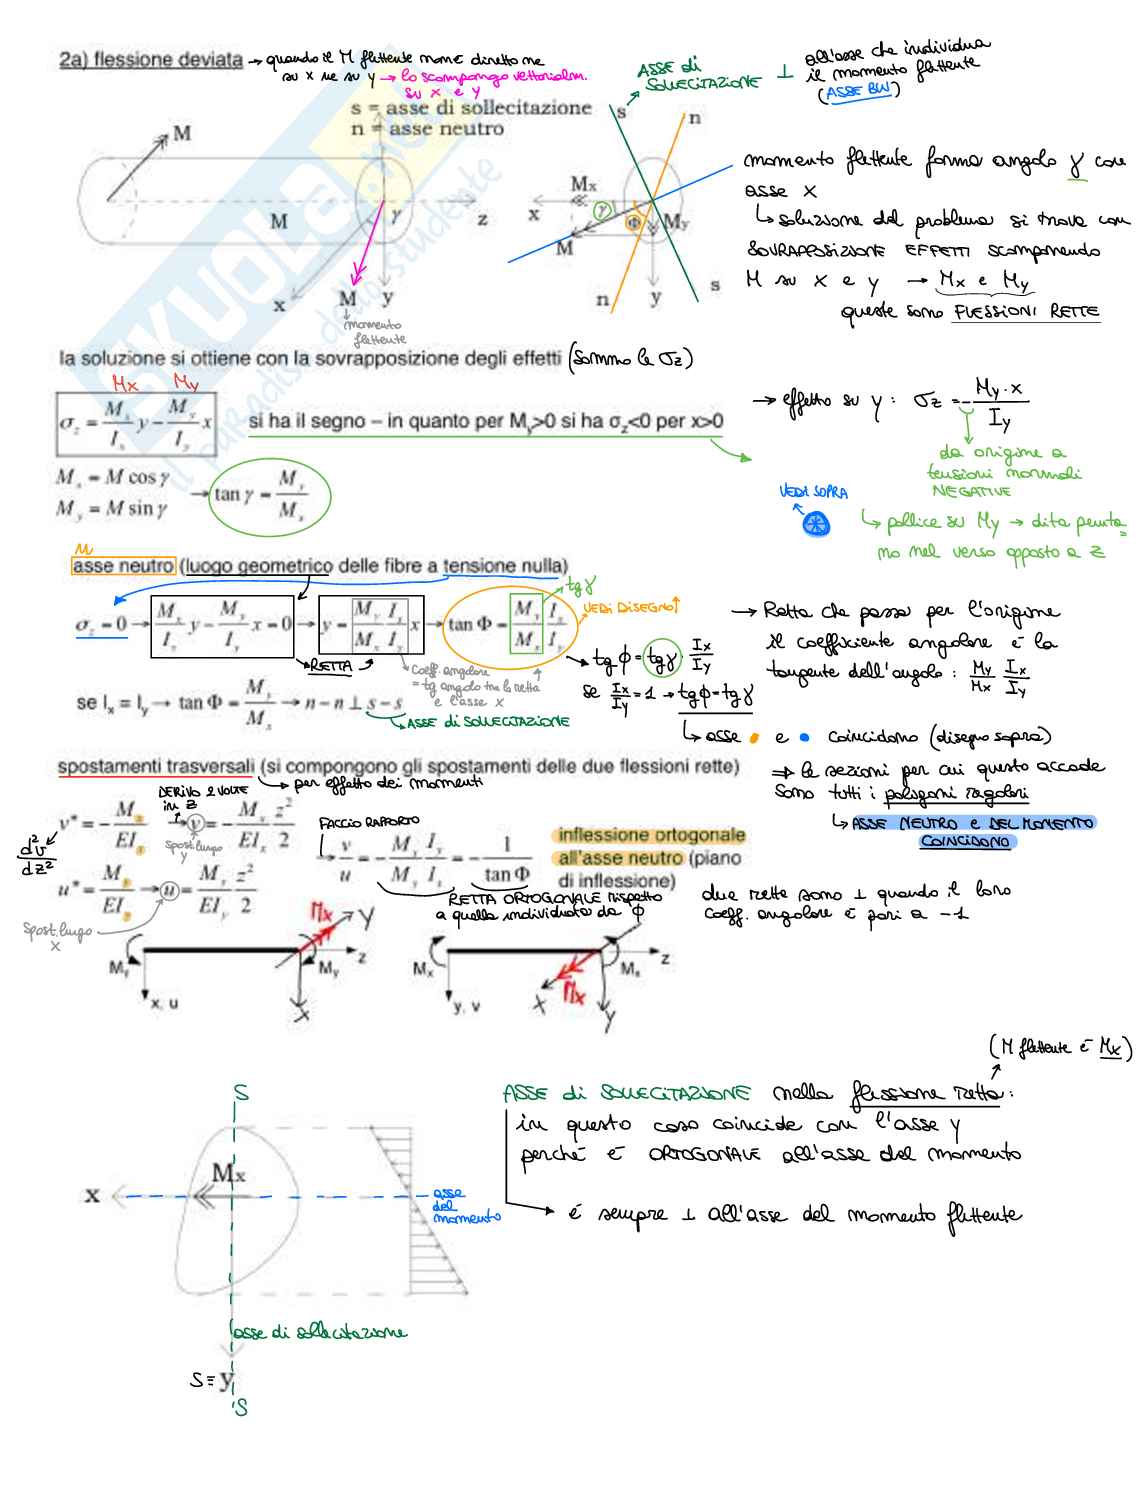 2a) flessione deviata → quando il M flettente non è diretto ne
su x ne su y → lo scompongo vettorialm.
su x e y
ASSE di
SOLLECITAZIONE ⊥ all'asse che individua
il momento flettente
(ASSE BLU)
s = asse di sollecitazione
n = asse neutro
M
M
γ
z
x
M
y
momento
flettente
s
n
Mx
x
γ
Φ
My
M
n
y
s
momento flettente forma angolo γ con
asse x
↳ soluzione del problema si trova con
SOVRAPPOSIZIONE EFFETTI scomponendo
M su x e y → Mx e My
queste sono FLESSIONI RETTE
la soluzione si ottiene con la sovrapposizione degli effetti (sommo le σz)
Mx My
σz = Mx/Ix y − My/Iy x
si ha il segno – in quanto per My>0 si ha σz<0 per x>0
→ effetto su y: σz = − My·x / Iy
da origine a
tensioni normali
NEGATIVE
Mx = M cos γ
My = M sin γ
→ tan γ = My/Mx
VEDI SOPRA
↳ pollice su My → dita punta=
no nel verso opposto a z
n
asse neutro (luogo geometrico delle fibre a tensione nulla)
σz = 0 → Mx/Ix y − My/Iy x = 0 → y = My/Mx Ix/Iy x → tan Φ = My/Mx Ix/Iy
tgγ
VEDI DISEGNO↑
→ RETTA
Coeff. angolare
= tg angolo tra la retta
e l'asse x
→ tgϕ = tgγ · Ix/Iy
se Ix/Iy = 1 → tgϕ = tgγ
↳ asse e coincidono (disegno sopra)
→ Retta che passa per l'origine
il coefficiente angolare è la
tangente dell'angolo: My/Mx Ix/Iy
se Ix = Iy → tan Φ = My/Mx → n – n ⊥ s – s
↳ ASSE di SOLLECITAZIONE
⇒ le sezioni per cui questo accade
sono tutti i poligoni regolari
↳ ASSE NEUTRO e DEL MOMENTO
COINCIDONO
spostamenti trasversali (si compongono gli spostamenti delle due flessioni rette)
→ per effetto dei momenti
DERIVO 2 VOLTE
in z
v" = − Mx/EIx → v = − Mx/EIx z²/2
d²v/dz²
spost. lungo
y
u" = My/EIy → u = My/EIy z²/2
Spost. lungo
x
FACCIO RAPPORTO
→ v/u = − Mx/My Iy/Ix = − 1/tan Φ
RETTA ORTOGONALE rispetto
a quella individuata da ϕ
inflessione ortogonale
all'asse neutro (piano
di inflessione)
due rette sono ⊥ quando il loro
coeff. angolare è pari a −1
My
x, u
Mx
Y
z
My
X
Mx
y, v
X
Mx
Y
Mx
z
(M flettente è Mx)
ASSE di SOLLECITAZIONE nella flessione retta:
in questo caso coincide con l'asse y
perché è ORTOGONALE all'asse del momento
→ è sempre ⊥ all'asse del momento flettente
S
x
Mx
asse
del
momento
asse di sollecitazione
S≡y
S